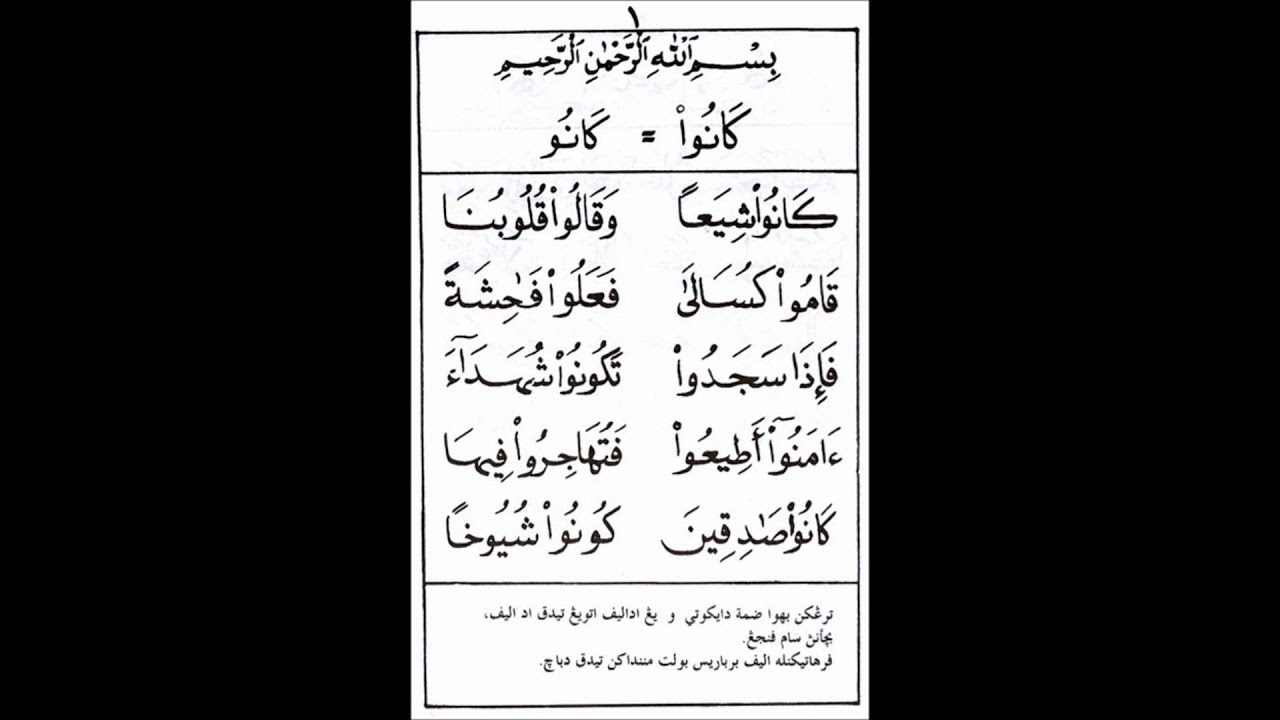 ١
بِسْمِ ٱللَّهِ ٱلرَّحْمَٰنِ ٱلرَّحِيمِ
كَانُوا۟ = كَانُو
كَانُوا۟ شِيَعاً وَقَالُوا۟ قُلُوبُنَا
قَامُوا۟ كُسَالَىٰ فَعَلُوا۟ فَٰحِشَةً
فَإِذَا سَجَدُوا۟ تَكُونُوا۟ شُهَدَآءَ
ءَامَنُوٓا۟ أَطِيعُوا۟ فَتُهَاجِرُوا۟ فِيهَا
كَانُوا۟ صَٰدِقِينَ كُونُوا۟ شُيُوخًا
ترڠكن بهوا ضمة دايكوتي و يڠ اداليف اتويڠ تيدق اد اليف،
بچأنڽ سام فنجڠ.
فرهاتيكنله اليف برباريس بولت مننداكن تيدق دباچ.